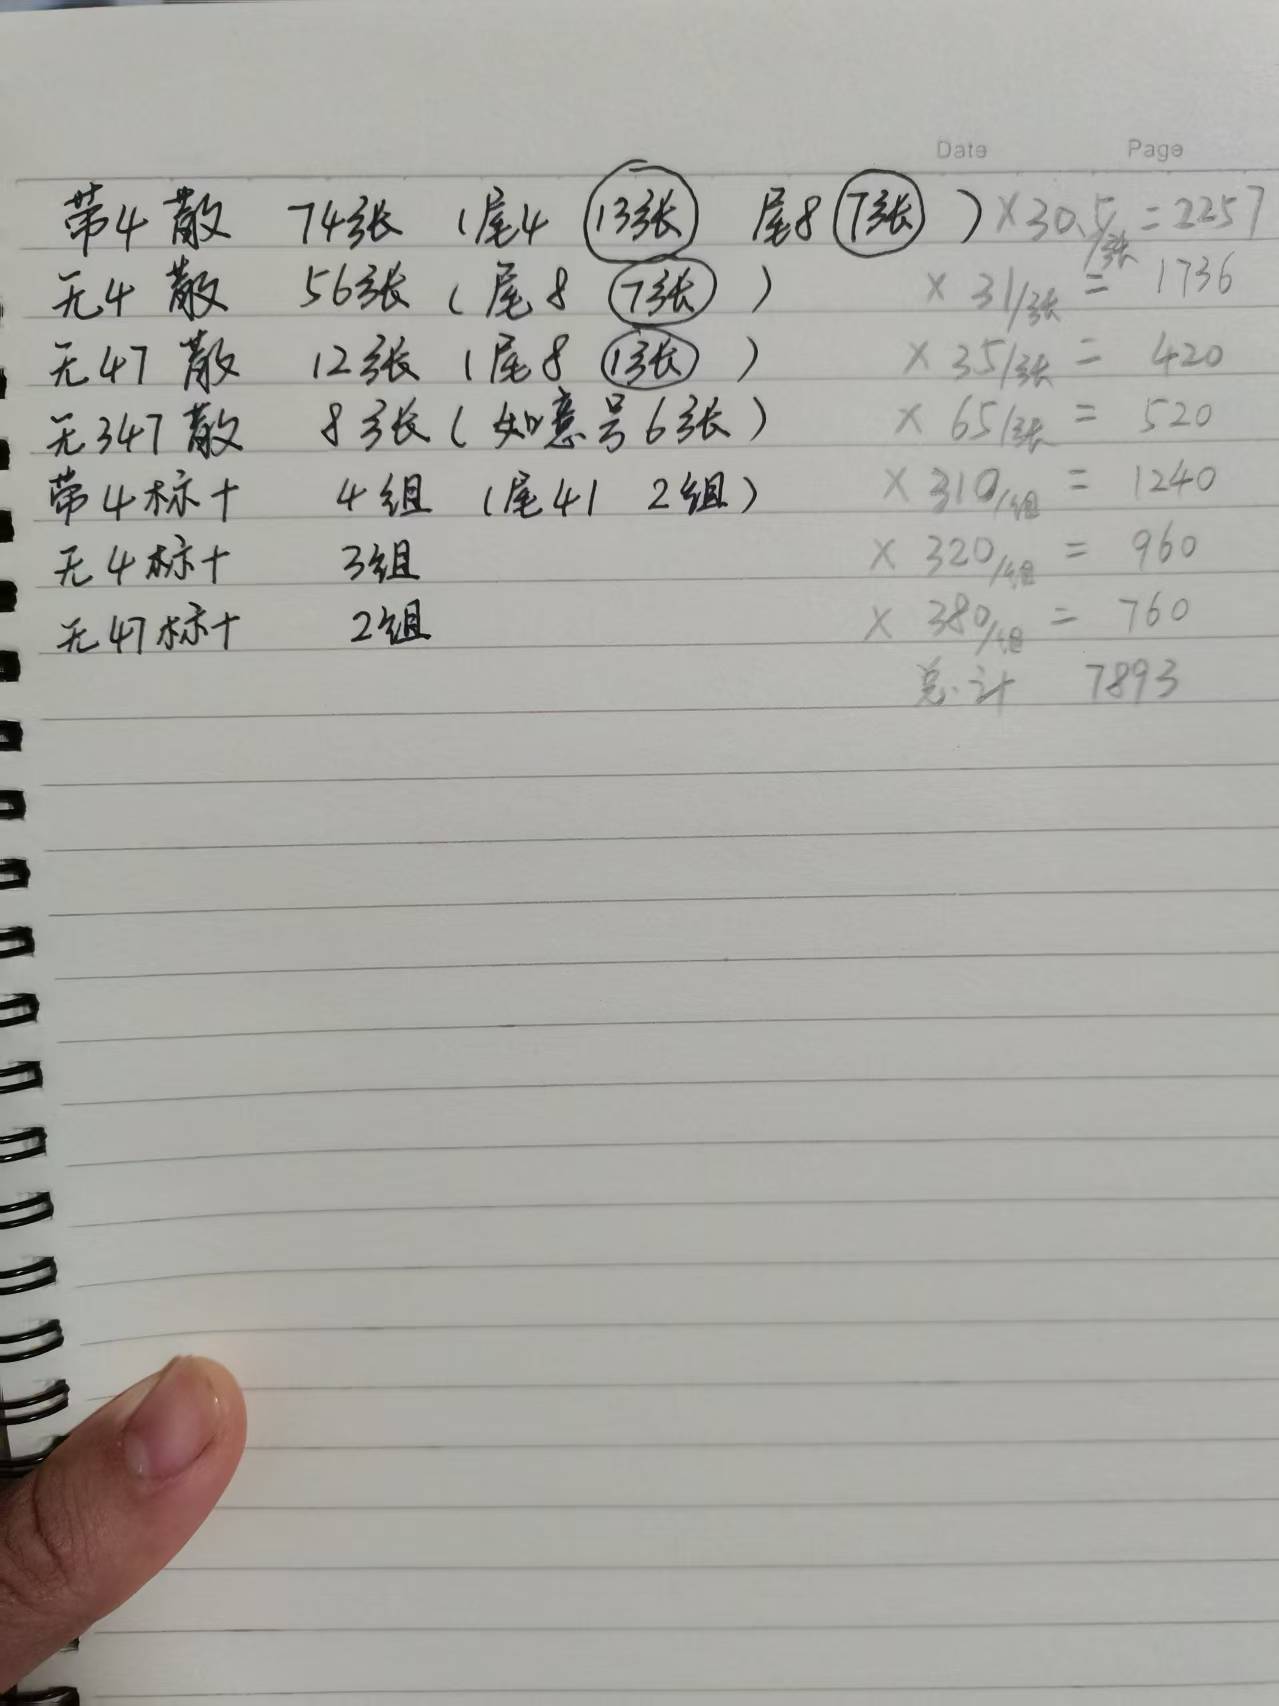 Date Page
带4散 74张 (尾4 13张 尾8 7张) ×30.5/张=2257
无4散 56张 (尾8 7张) ×31/张= 1736
无47散 12张 (尾8 1张) ×35/张= 420
无347散 8张 (如意号6张) ×65/张= 520
带4标十 4组 (尾41 2组) ×310/组= 1240
无4标十 3组 ×320/组= 960
无47标十 2组 ×380/组= 760
总计 7893